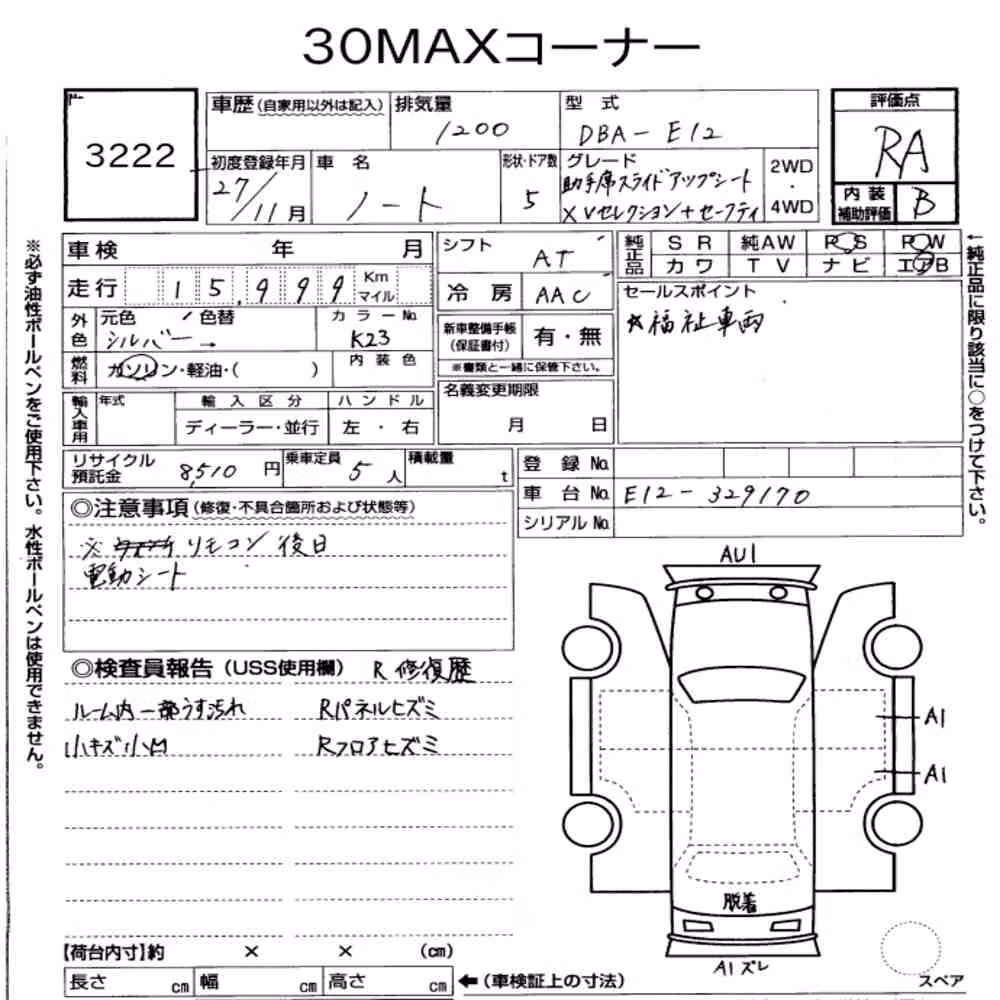 30MAXコーナー
3222
車歴(自家用以外は記入)
排気量
1200
型式
DBA-E12
評価点
RA
初度登録年月
27/11月
車名
ノート
形状・ドア数
5
グレード
助手席スライドアップシート
XVセレクション+セーフティ
2WD
・
4WD
内装
補助評価
B
車検 年 月
シフト
AT
純正品
SR 純AW PS PW
カワ TV ナビ エアB
走行 15,999 Km
マイル
冷房 AAC
セールスポイント
☆福祉車両
外色
元色 / 色替
シルバー→
カラーNo.
K23
新車整備手帳
(保証書付)
有・無
※書類と一緒に保管下さい。
燃料
ガソリン・軽油・( )
内装色
名義変更期限
月 日
輸入車用
年式
輸入区分
ハンドル
ディーラー・並行
左・右
リサイクル
預託金
8,510円
乗車定員
5人
積載量
t
登録No.
車台No. E12-329170
シリアルNo.
◎注意事項(修復・不具合箇所および状態等)
※ リモコン後日
電動シート
◎検査員報告(USS使用欄) R修復歴
ルーム内一部うす汚れ Rパネルヒズミ
小キズ小凹 Rフロアヒズミ
【荷台内寸】約 × × (cm)
長さ cm 幅 cm 高さ cm
←(車検証上の寸法)
AU1
A1
A1
脱着
A1ズレ
スペア
※必ず油性ボールペンをご使用下さい。水性ボールペンは使用できません。
←純正品に限り該当に○をつけて下さい。